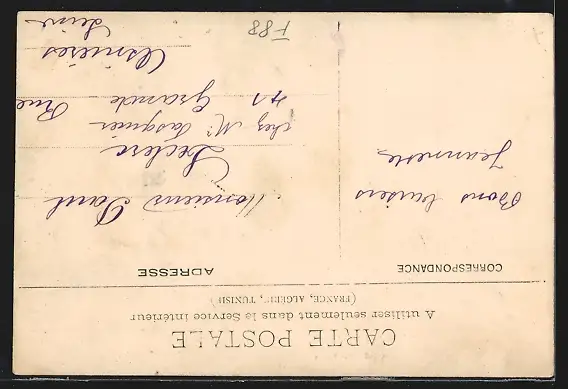 CARTE POSTALE
A utiliser seulement dans le Service intérieur
(FRANCE, ALGÉRIE, TUNISIE)
CORRESPONDANCE
ADRESSE
Bons baisers
Jeannette
Monsieur Paul
Leclerc
chez Mr Pasquier
41 Grande Rue
Asnières
Seine
F88